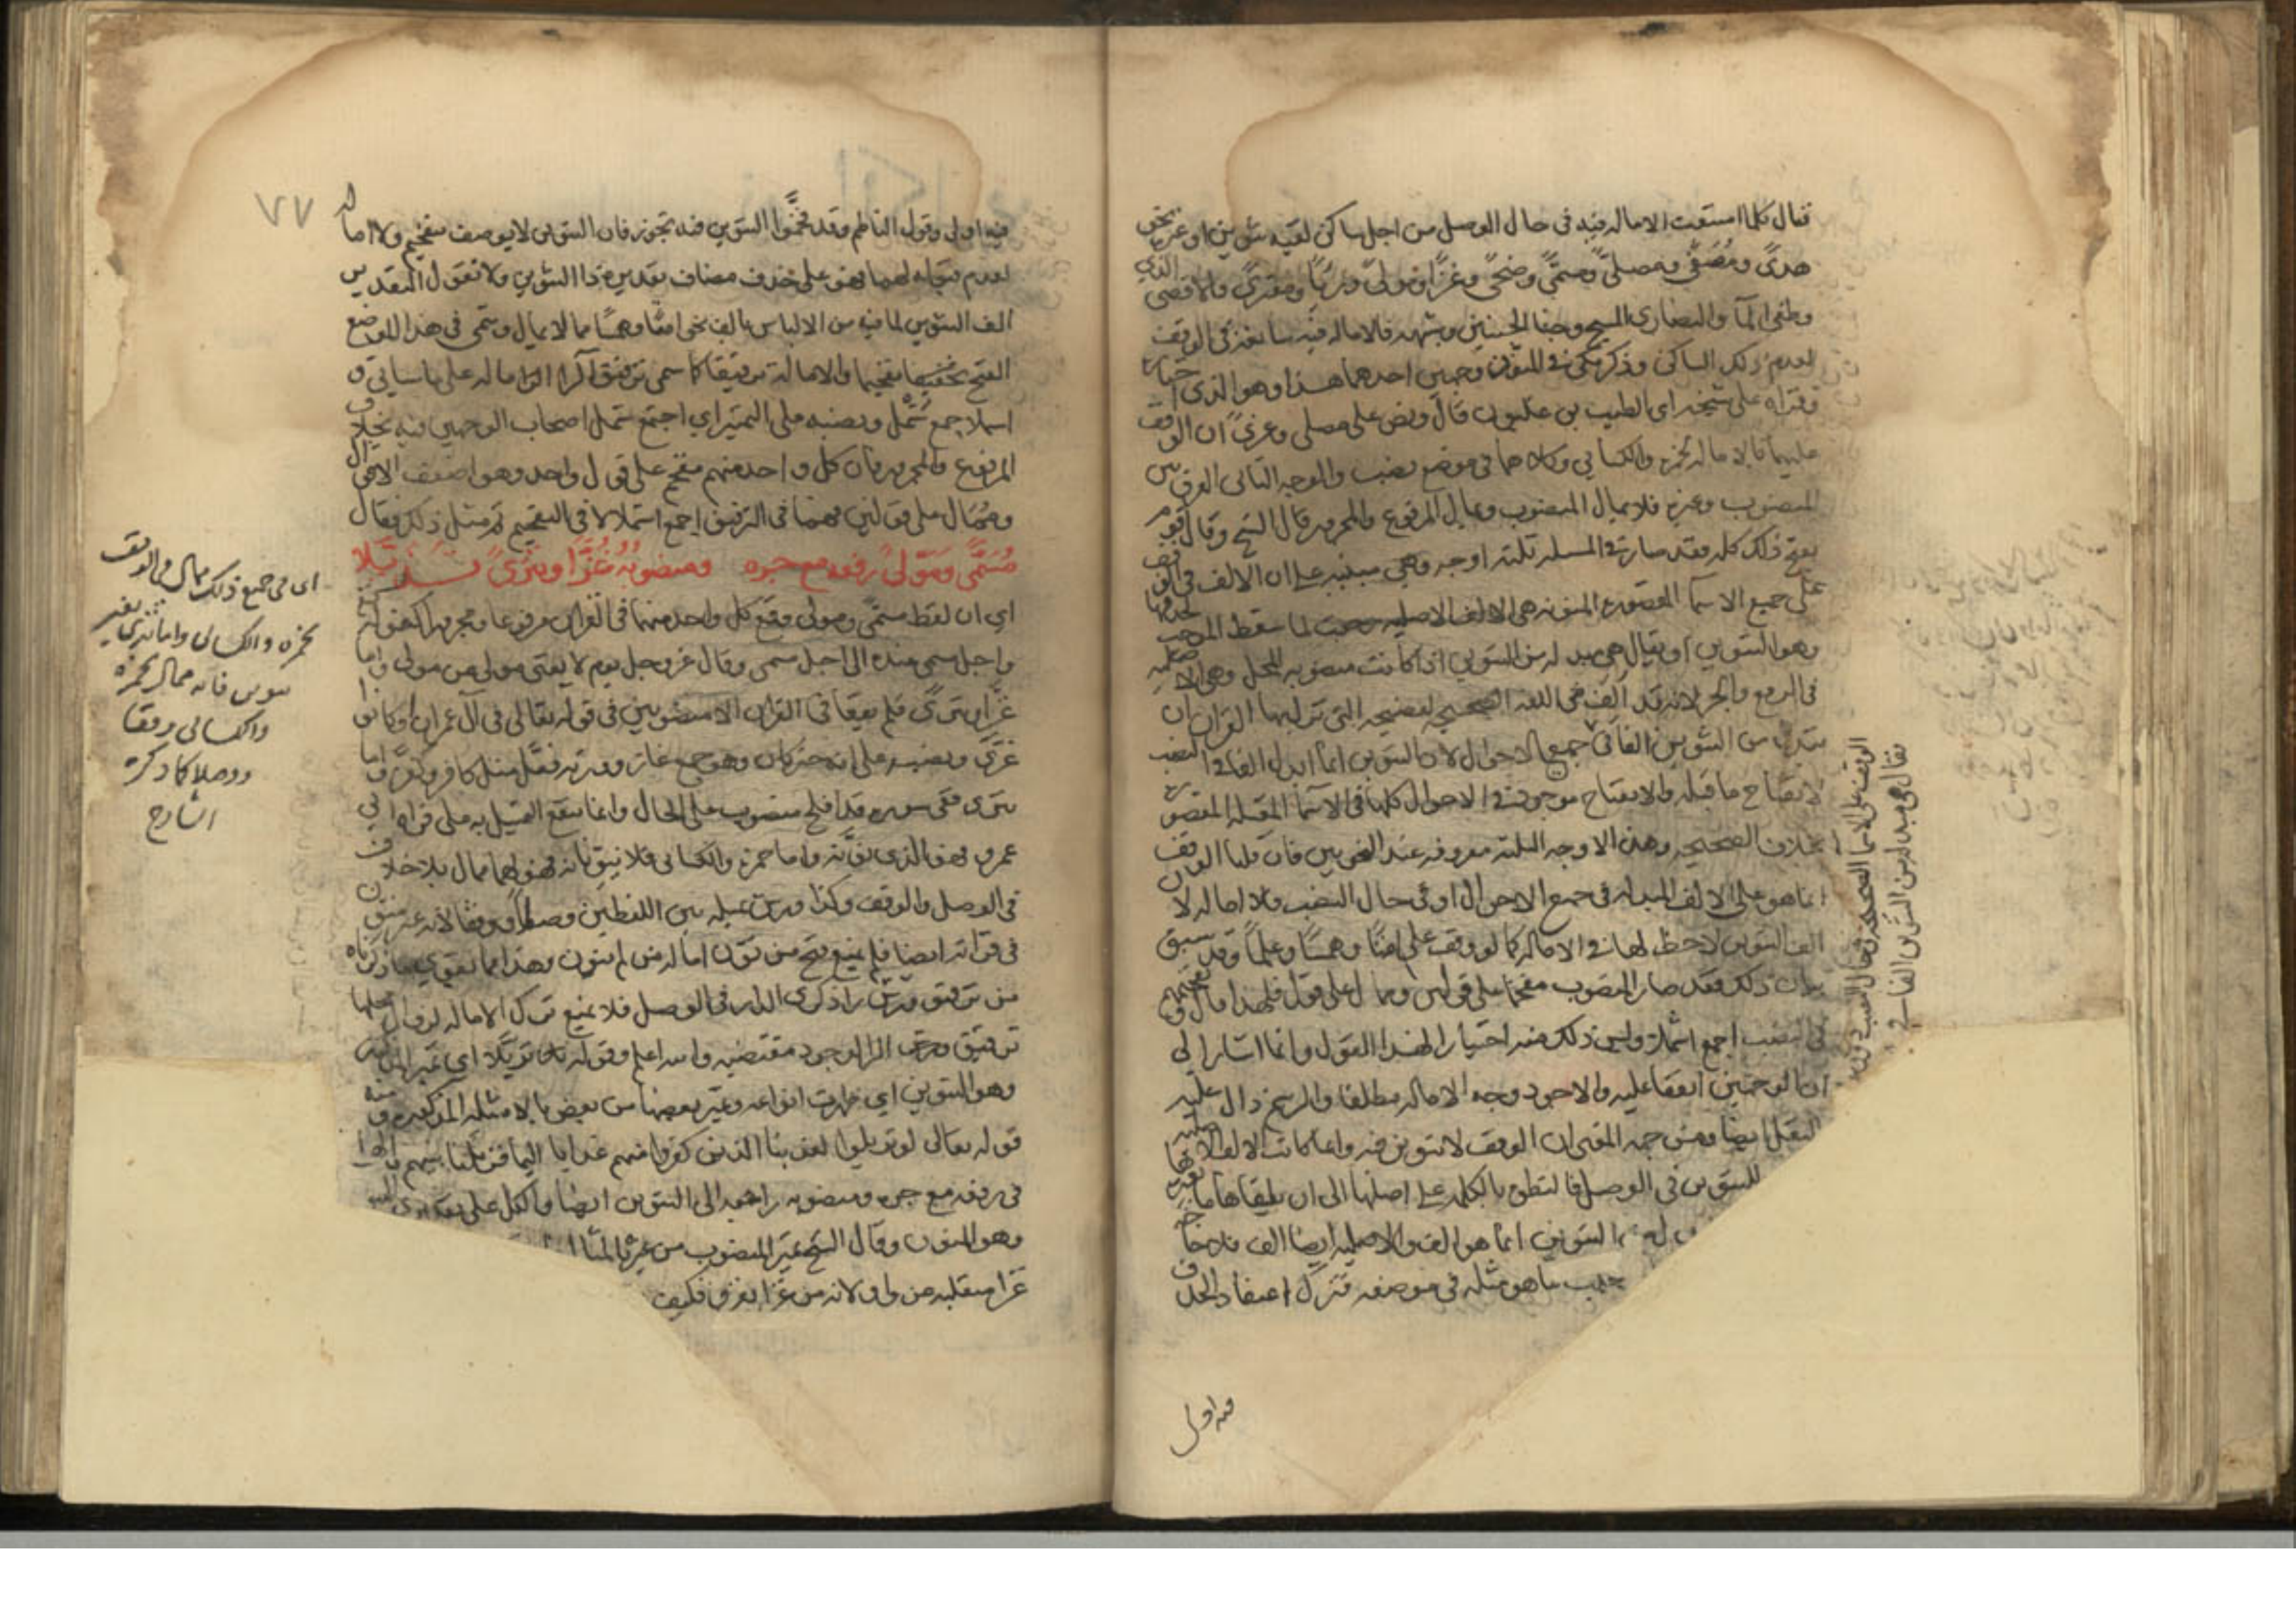 فقال كلما امتنعت الامالة فيه في حال الوصل من اجل ساكن لقيه تنوين او غيره نحو
هدىً ومصفىً ومصلىً ومسمىً وضحىً وغزّاً ومولىً ورباً ومفترىً والاقصى الذي
وطغى الما والنصارى المسيح وجنا الجنتين وشبهه فالامالة فيه سايغة في الوقف
لعدم ذلك الساكن وذكر مكي في المنون وجهين احدهما هذا وهو الذي اختاره
وقراه على شيخه ابي الطيب بن غلبون قال ونص على مصلى وغزىً ان الوقف
عليهما بالامالة لحمزة والكسائي وكلاهما في موضع نصب والوجه الثاني الفرق بين
المنصوب وغيره فلا يمال المنصوب ويمال المرفوع والمجرور قال الشيخ وقال قوم
بفتح ذلك كله فقد صار في المسلة ثلثة اوجه وهي مبنية على ان الالف في الوقف
على جميع الاسما المقصورة المنونة هي الالف الاصلية رجعت لما سقط الموجب لحذفها
وهو التنوين او يقال هي مبدلة من التنوين اذا كانت منصوبة المحل وهي الاصلية
في الرفع والجر لانه قد الف في اللغة الصحيحة الفصيحة التي نزل بها القران ان
يبدل من التنوين الفا في جميع الاحوال لان التنوين انما ابدل الفا في النصب
لانفتاح ما قبله والانفتاح موجود في الاحوال كلها في الاسما المعتلة المقصورة
بخلاف الصحيحة وهذه الاوجه الثلثة معروفة عند النحويين فان قلنا الوقف
انما هو على الالف المبدلة في جميع الاحوال او في حال النصب فلا امالة لان
الف التنوين لا حظ لها في الامالة كما لو وقفت على امتاً وهمساً وعلماً وقد سبق
بيان ذلك فقد صار المنصوب مفخما على قولين وممالا على قول فلهذا قال وتفخيمهم
في النصب اجمع اشملا وليس ذلك منه اختيارا لهذا القول وانما اشار الى
ان الوجهين اتفقا عليه والاجود وجه الامالة مطلقا والرسم دال عليه
النقل ايضا ومن جهة المعنى ان الوقف لا تنوين فيه وانما كانت الالف
للتنوين في الوصل فالنطق بالكلمة على اصلها الى ان يلقاها ما
التنوين انما هو الف والاصلية ايضا الف فلا حاجة
جلب ما هو مثله في موضعه فترك اعتقاد الحذف
فيه اولى
الوقف على الاسما الصحيحة في حال النصب دون
يقال هي مبدلة من التنوين الفا في
٧٧
فيه اولى وقول الناظم وقد فخموا التنوين فيه تجوز فان التنوين لا يوصف بتفخيم ولا امالة
لعدم قبوله لهما فهو على حذف مضاف تقديره ذا التنوين ولا نقول التقدير
الف التنوين لما فيه من الالباس بالف نحو امتاً وهمساً مما لا يمال وسمى في هذا الموضع
الفتح تفخيما والامالة ترقيقا كما سمى ترقيق الرا امالة على ما سياتي و
اشملا جمع شمل ونصبه على التمييز اي اجتمع شمل اصحاب الوجهين فيه بخلاف
المرفوع والمجرور فان كل واحد منهم مفخم على قول واحد وهو اضعف الاقوال
وممال على قولين فهما في الترقيق اجمع اشملا لا في التفخيم ثم مثل ذلك فقال
مُسَمَّىً وَمَوْلىً رفعه مع جره ومنصوبه غُزّىً وتَتْرىً تزيّلا
اي ان لفظ مسمّى ومولى وقع كل واحد منهما في القران مرفوعا ومجرورا كقوله
واجل مسمى عنده الى اجل مسمى وقال عز وجل يوم لا يغني مولى عن مولى واما
غزّاً وتترىً فلم يقعا في القران الا منصوبين في قوله تعالى في آل عمران او كانوا
غزّىً ونصبه على انه خبر كان وهو جمع غاز ووزنه فعّل مثل كافر وكفّر واما
تترى ففي سورة قد افلح منصوب على الحال وانما يقع التمثيل به على قراة ابي
عمرو فهو الذي نوّنه واما حمزة والكسائي فلا ينوّنانه فهو لهما ممال بلا خلاف
في الوصل والوقف وكذا ورش يميله بين اللفظين وصلاً ووقفاً لانه غير منون
في قراته ايضا فلم يمنع فتح من نوّن امالة من لم ينون وهذا مما يقوي ما ذكرناه
من ترقيق ورش را ذكرى الدار في الوصل فلا يمنع ترك الامالة لزوال محلها
ترقيق ورش الرا لوجود مقتضيه والله اعلم وقوله تزيّلا اي تميز المذكور
وهو التنوين اي ظهرت انواعه وتميز بعضها من بعض بالامثلة المذكورة ومنه
قوله تعالى لو تزيلوا لعذبنا الذين كفروا منهم عذابا اليما فزيلنا بينهم والها
في رفعه مع جره ومنصوبه راجعة الى التنوين ايضا والكل على تقدير ذي التنوين
وهو المنون وقال الشيخ تميز المنصوب من غيره بالمثال
غزا منقلبة عن واو لانه من غزا يغزو فكيف
اي في جميع ذلك ممال في الوقف
لحمزة والكسائي واما تترى بغير
تنوين فانه ممال لحمزة
والكسائي وقفا
ووصلا كما ذكره
الشارح